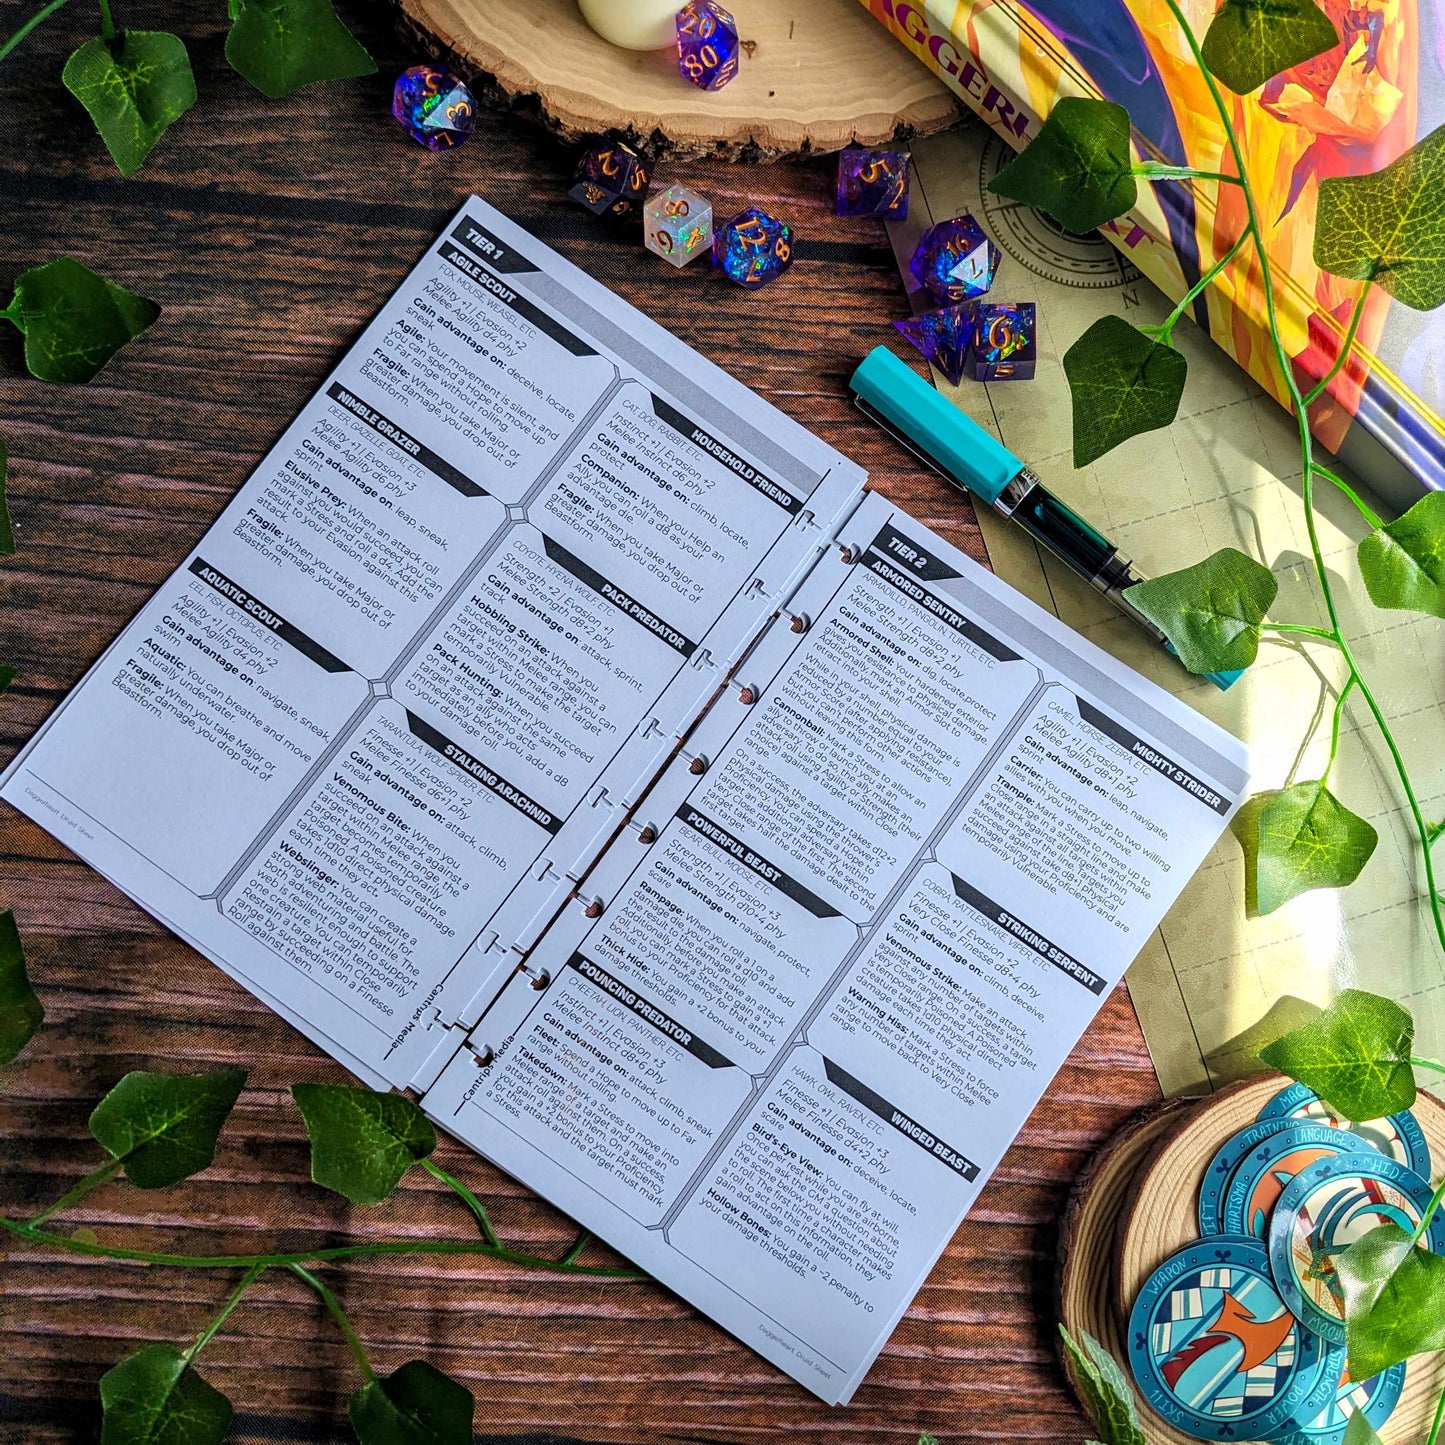 TIER 1
AGILE SCOUT
FOX, MOUSE, WEASEL, ETC.
Agility +1 | Evasion +2
Melee Agility d4 phy
Gain advantage on: deceive, locate,
sneak
Agile: Your movement is silent, and
you can spend a Hope to move up
to Far range without rolling.
Fragile: When you take Major or
greater damage, you drop out of
Beastform.
NIMBLE GRAZER
DEER, GAZELLE, GOAT, ETC.
Agility +1 | Evasion +3
Melee Agility d6 phy
Gain advantage on: leap, sneak,
sprint
Elusive Prey: When an attack roll
against you would succeed, you can
mark a Stress and roll a d4. Add the
result to your Evasion against this
attack.
Fragile: When you take Major or
greater damage, you drop out of
Beastform.
AQUATIC SCOUT
EEL, FISH, OCTOPUS, ETC.
Agility +1 | Evasion +2
Melee Agility d4 phy
Gain advantage on: navigate, sneak,
swim
Aquatic: You can breathe and move
naturally underwater.
Fragile: When you take Major or
greater damage, you drop out of
Beastform.
Daggerheart Druid Sheet
HOUSEHOLD FRIEND
CAT, DOG, RABBIT, ETC.
Instinct +1 | Evasion +2
Melee Instinct d6 phy
Gain advantage on: climb, locate,
protect
Companion: When you Help an
Ally, you can roll a d8 as your
advantage die.
Fragile: When you take Major or
greater damage, you drop out of
Beastform.
PACK PREDATOR
COYOTE, HYENA, WOLF, ETC.
Strength +2 | Evasion +1
Melee Strength d8+2 phy
Gain advantage on: attack, sprint,
track
Hobbling Strike: When you
succeed on an attack against a
target within Melee range, you can
mark a Stress to make the target
temporarily Vulnerable.
Pack Hunting: When you succeed
on an attack against the same
target as an ally who acts
immediately before you, add a d8
to your damage roll.
STALKING ARACHNID
TARANTULA, WOLF SPIDER, ETC.
Finesse +1 | Evasion +2
Melee Finesse d6+1 phy
Gain advantage on: attack, climb,
sneak
Venomous Bite: When you
succeed on an attack against a
target within Melee range, the
target becomes temporarily
Poisoned. A Poisoned creature
takes 1d10 direct physical damage
each time they act.
Webslinger: You can create a
strong web material useful for
both adventuring and battle. The
web is resilient enough to support
one creature. You can temporarily
Restrain a target within Close
range by succeeding on a Finesse
Roll against them.
Cantrips Media
TIER 2
ARMORED SENTRY
ARMADILLO, PANGOLIN, TURTLE, ETC.
Strength +1 | Evasion +1
Melee Strength d8+2 phy
Gain advantage on: dig, locate, protect
Armored Shell: Your hardened exterior
gives you resistance to physical damage.
Additionally, mark an Armor Slot to
retract into your shell.
While in your shell, physical damage is
reduced by a number equal to your
Armor Score (after applying resistance),
but you can't perform other actions
without leaving this form.
Cannonball: Mark a Stress to allow an
ally to throw or launch you at an
adversary. To do so, the ally makes an
attack roll using Agility or Strength (their
choice) against a target within Close
range.
On a success, the adversary takes d12+2
physical damage using the thrower's
Proficiency. You can spend a Hope to
target an additional adversary within
Very Close range of the first. The second
target takes half the damage dealt to the
first target.
POWERFUL BEAST
BEAR, BULL, MOOSE, ETC.
Strength +1 | Evasion +3
Melee Strength d10+4 phy
Gain advantage on: navigate, protect,
scare
Rampage: When you roll a 1 on a
damage die, you can roll a d10 and add
the result to the damage roll.
Additionally, before you make an attack
roll, you can mark a Stress to gain a +1
bonus to your Proficiency for that attack.
Thick Hide: You gain a +2 bonus to your
damage thresholds
POUNCING PREDATOR
CHEETAH, LION, PANTHER, ETC.
Instinct +1 | Evasion +3
Melee Instinct d8+6 phy
Gain advantage on: attack, climb, sneak
Fleet: Spend a Hope to move up to Far
range without rolling.
Takedown: Mark a Stress to move into
Melee range of a target and make an
attack roll against them. On a success,
you gain a +2 bonus to your Proficiency
for this attack and the target must mark
a Stress
Cantrips Media
MIGHTY STRIDER
CAMEL, HORSE, ZEBRA, ETC.
Agility +1 | Evasion +2
Melee Agility d8+1 phy
Gain advantage on: leap, navigate,
sprint
Carrier: You can carry up to two willing
allies with you when you move.
Trample: Mark a Stress to move up to
Close range in a straight line and make
an attack against all targets within
Melee range of the line. Targets you
succeed against take d8+1 physical
damage using your Proficiency and are
temporarily Vulnerable.
STRIKING SERPENT
COBRA, RATTLESNAKE, VIPER, ETC.
Finesse +1 | Evasion +2
Very Close Finesse d8+4 phy
Gain advantage on: climb, deceive,
sprint
Venomous Strike: Make an attack
against any number of targets within
Very Close range. On a success, a target
is temporarily Poisoned. A Poisoned
creature takes 1d10 physical direct
damage each time they act.
Warning Hiss: Mark a Stress to force
any number of targets within Melee
range to move back to Very Close
range.
WINGED BEAST
HAWK, OWL, RAVEN, ETC.
Finesse +1 | Evasion +3
Melee Finesse d4+2 phy
Gain advantage on: deceive, locate,
scare
Bird's-Eye View: You can fly at will.
Once per rest while you are airborne,
you can ask the GM a question about
the scene below you without needing
to roll. The first time a character makes
a roll to act on this information, they
gain advantage on the roll.
Hollow Bones: You gain a -2 penalty to
your damage thresholds.
Daggerheart Druid Sheet
WEAPON
SKILL
POWER
STRENGTH
TRAINING
LANGUAGE
CHARISMA
HIDE